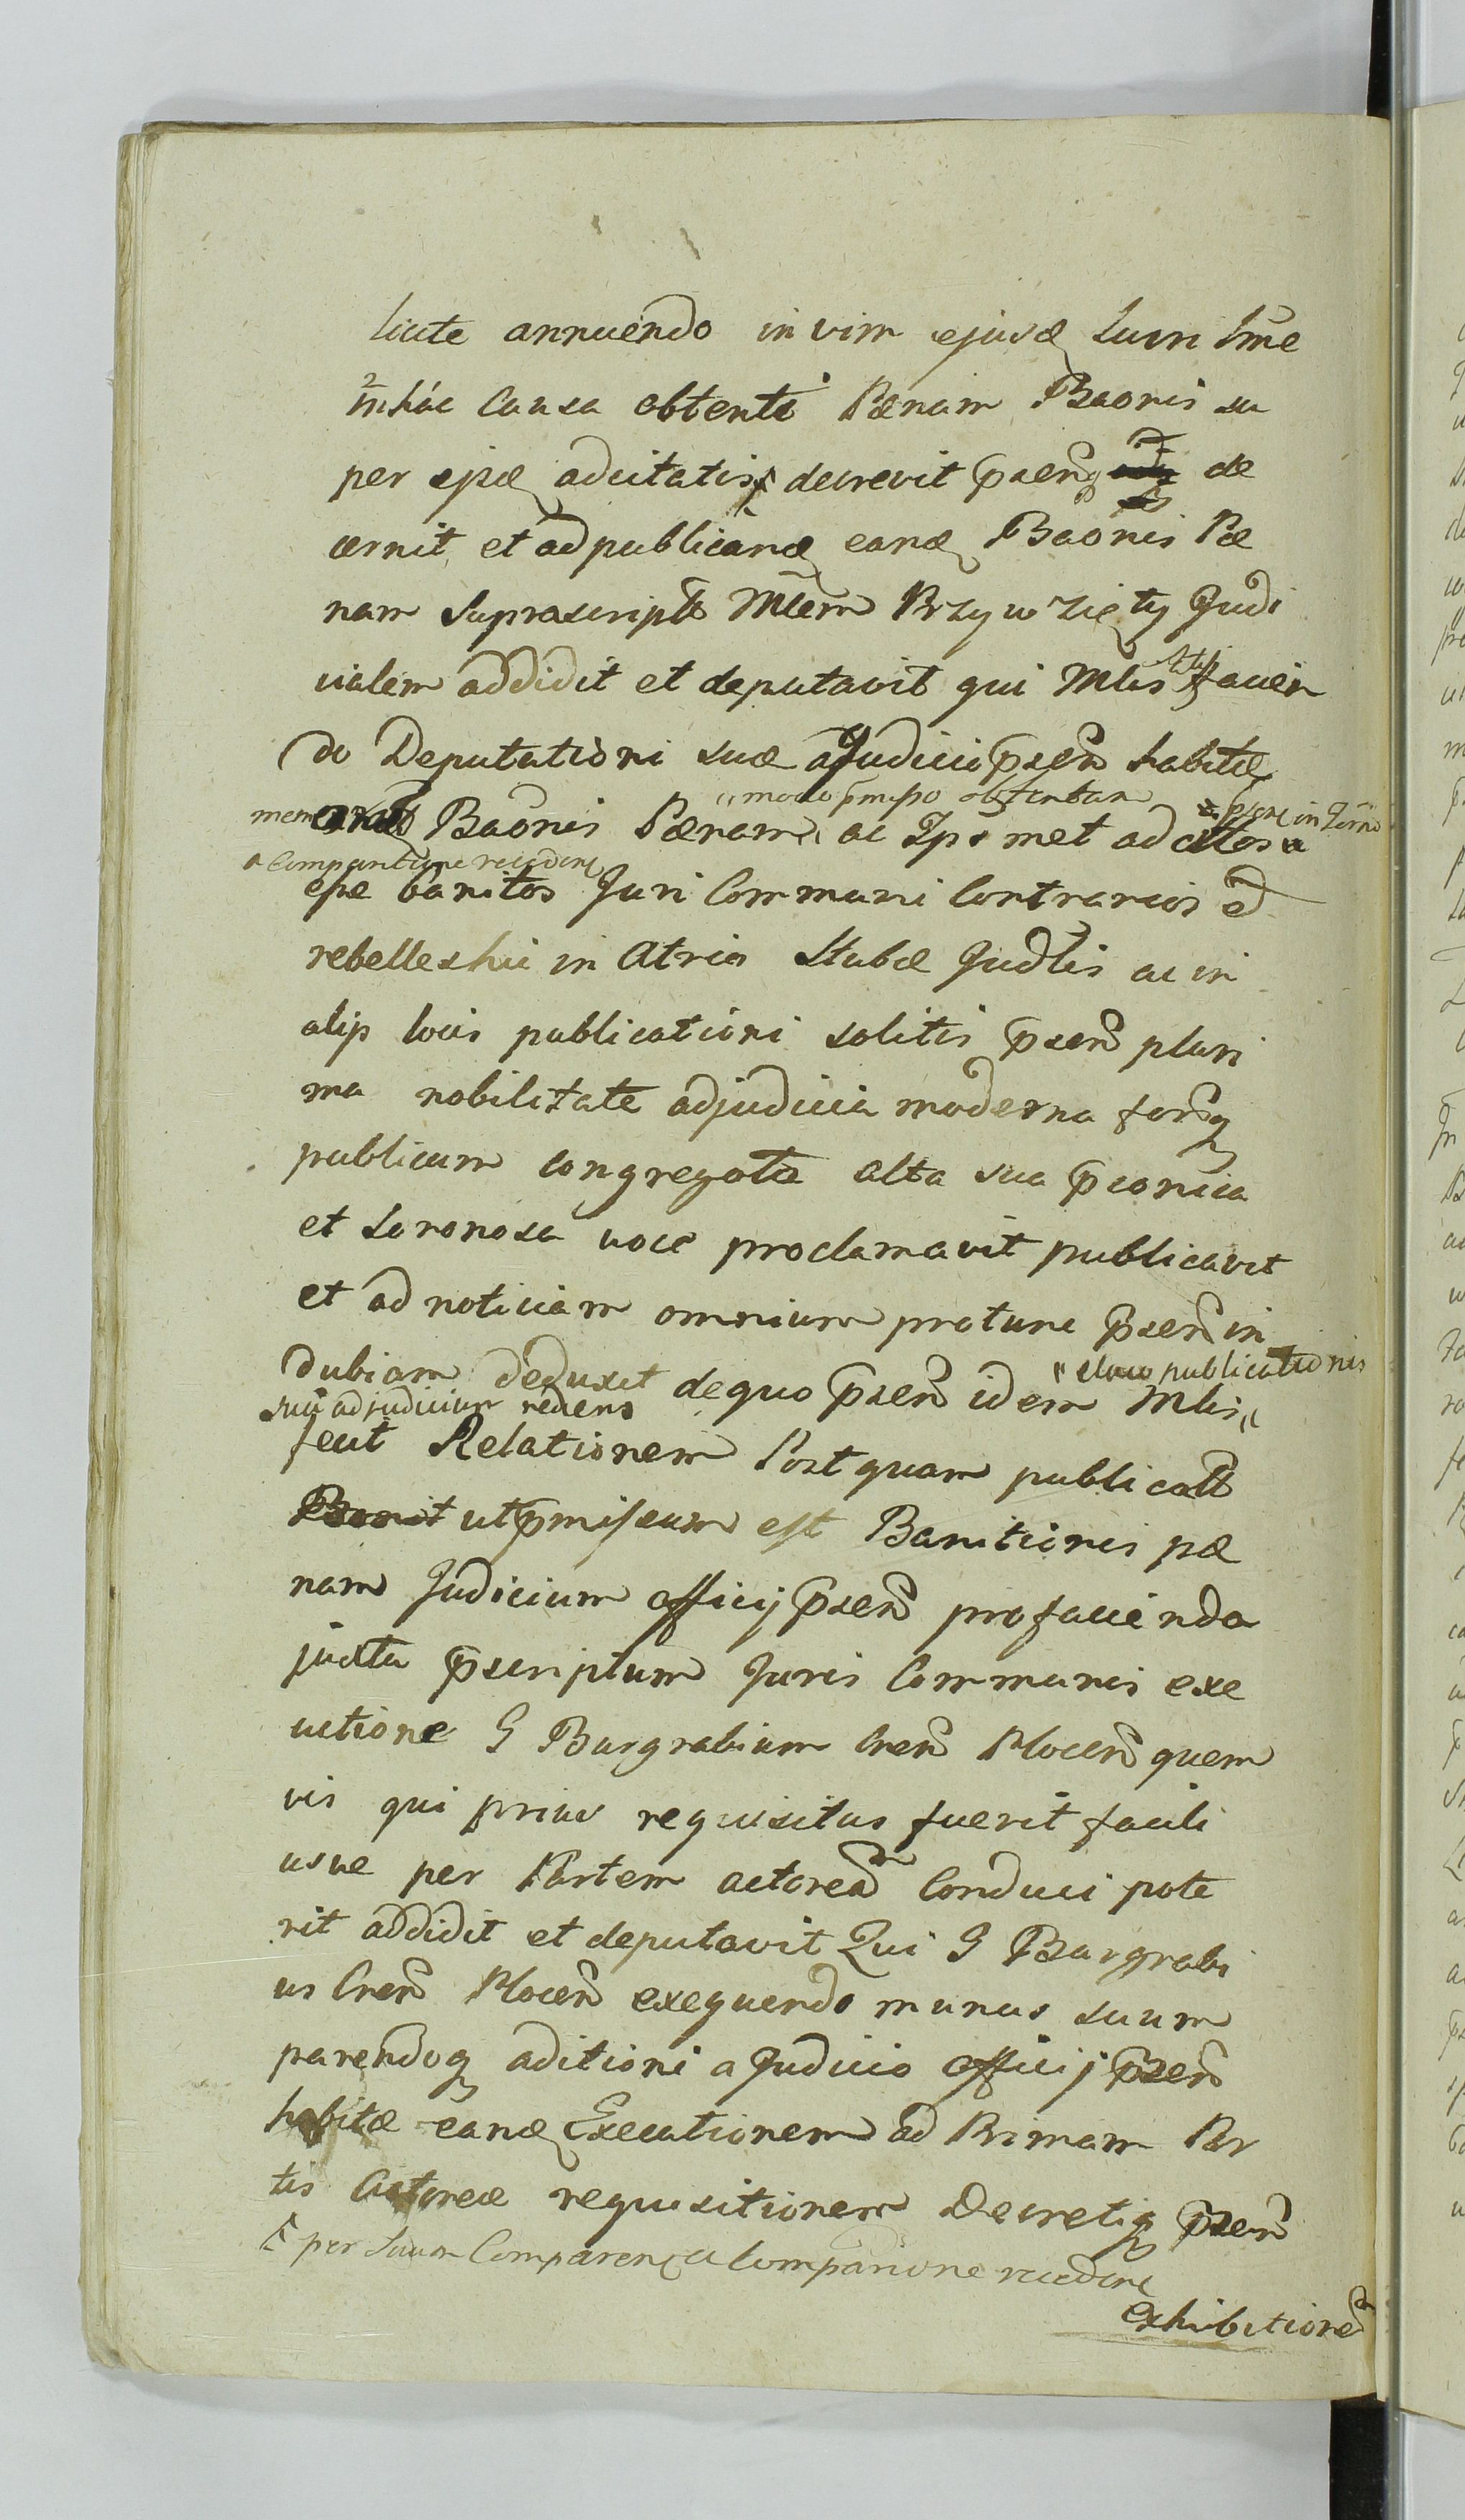 licite annuendo in vim ejusd Lucri Lme
in hac Causa obtenti Pœnam Baõnis su
per ejsd adcitatis decrevit psenq de
cernit et ad publicand eand Baõnis Pœ
nam Suprascripto Mlem Przywzięty Judi
cialem addidit et deputavit qui Mlis satisfacien
do Deputationi suæ a Judicio psen habitæ
modo pmisso obtentam
Baõnis Pœnam ac Ipsmet adcitos
a Comparitione recedere
esse banitos Juri Communi Contrarios et
rebelleshic in Atrio Stubæ Judlis ac in
alijs locis publicationi solitis psen pluri
ma nobilitate adjudicia moderna forq
publicum congregata alta sua pconica
et sononosa voce proclamavit publicavit
et ad noticiam omnium pro tunc psen in
dubiam deduxit de quo psen idem Mlis
publicationis
suæ ad judicium rediens
fecit Relationem Post quam publicatt
ut pmissum est Banitionis pœ
nam Judicium officij psen pro facienda
juxta pscriptum Juris Communis exe
cutione G Burgrabium Cren Plocen quem
vis qui prius requisitus fuerit facili
usve per Partem actorea Conduci pote
rit addidit et deputavit Qui G Burgrabi
us Cren Plocen exequendo munus suum
parendoq aditioni a Judicio officij psen
habitæ eand Executionem ad Primam Par
tis Actoreæ requisitionem Decretiq psen
per suam Comparen a Comparione recedere
exhibitione